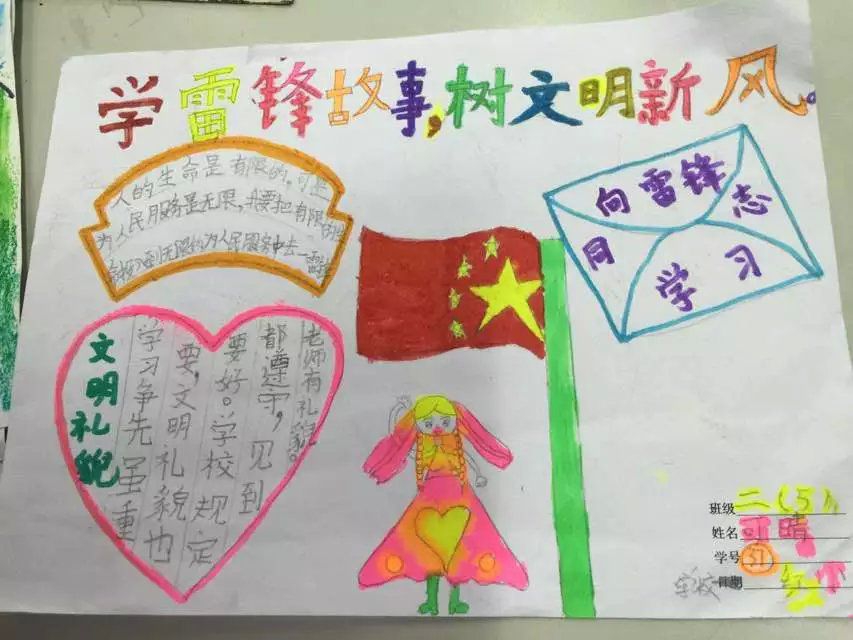 学雷锋故事,树文明新风。
人的生命是有限的,可是
为人民服务是无限,我要把有限的生
投入到无限的为人民服务中去一雷锋
向雷锋
同志
学习
文明礼貌
学习争先虽重
要,文明礼貌也
要好。学校规定
都遵守,见到
老师有礼貌。
班级 二(5)
姓名 可晴
学号 51
学校 日期